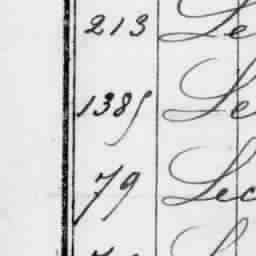 213 Le
1385 Le
79 Lec